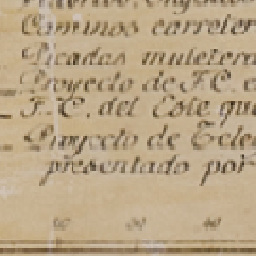 Caminos carreter
Picadas muletera
Proyecto de F.C. e
F.C. del Este que
Proyecto de Tele
presentado por
30 40